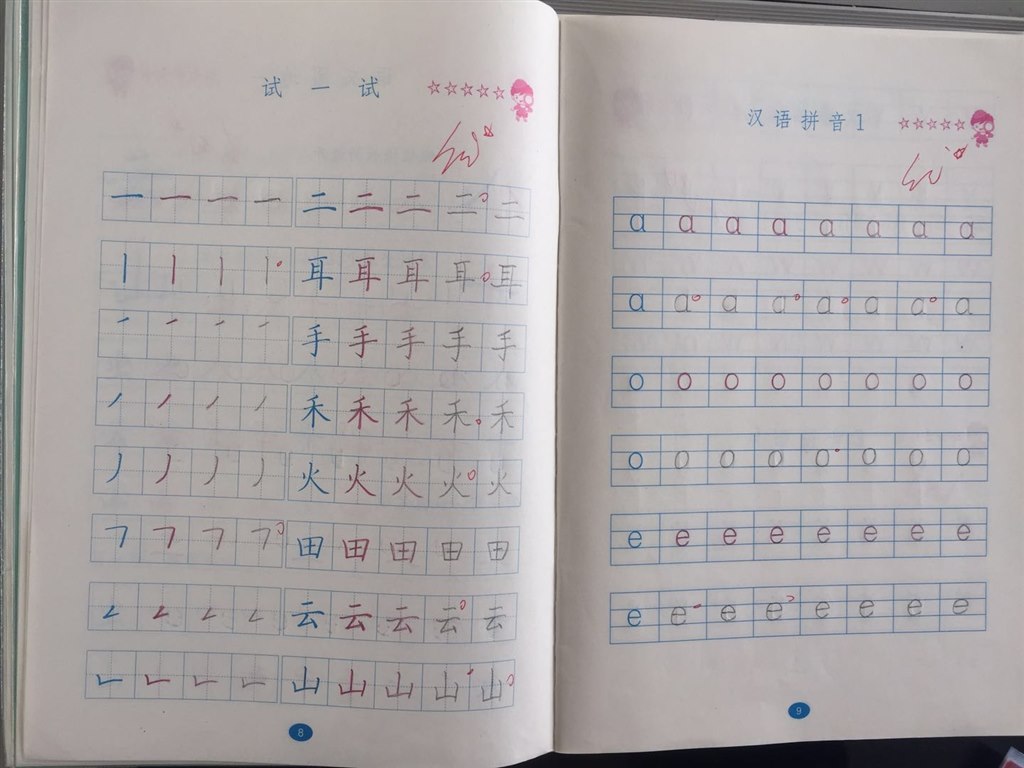 试一试
一 一 一 一 二 二 二 二 二
丨 丨 丨 丨 耳 耳 耳 耳 耳
㇀ ㇀ ㇀ ㇀ 手 手 手 手 手
㇒ ㇒ ㇒ ㇒ 禾 禾 禾 禾 禾
丿 丿 丿 丿 火 火 火 火 火
㇆ ㇆ ㇆ ㇆ 田 田 田 田 田
𠃋 𠃋 𠃋 𠃋 云 云 云 云 云
𠃊 𠃊 𠃊 𠃊 山 山 山 山 山
8
汉语拼音1
a a a a a a a a
a a a a a a a a
o o o o o o o o
o o o o o o o o
e e e e e e e e
e e e e e e e e
9